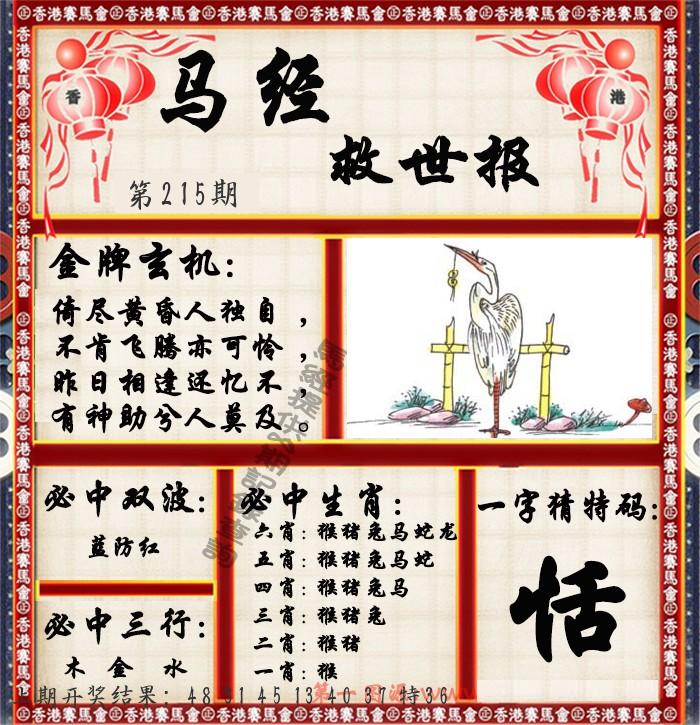 香港賽馬會
香
港
马经
救世报
第215期
金牌玄机:
倚尽黄昏人独自，
不肯飞腾亦可怜，
昨日相逢还忆不，
有神助兮人莫及。
必中双波:
蓝防红
必中三行:
木 金 水
必中生肖:
六肖: 猴猪兔马蛇龙
五肖: 猴猪兔马蛇
四肖: 猴猪兔马
三肖: 猴猪兔
二肖: 猴猪
一肖: 猴
一字猜特码:
恬
期开奖结果: 48 31 45 13 40 37 特36